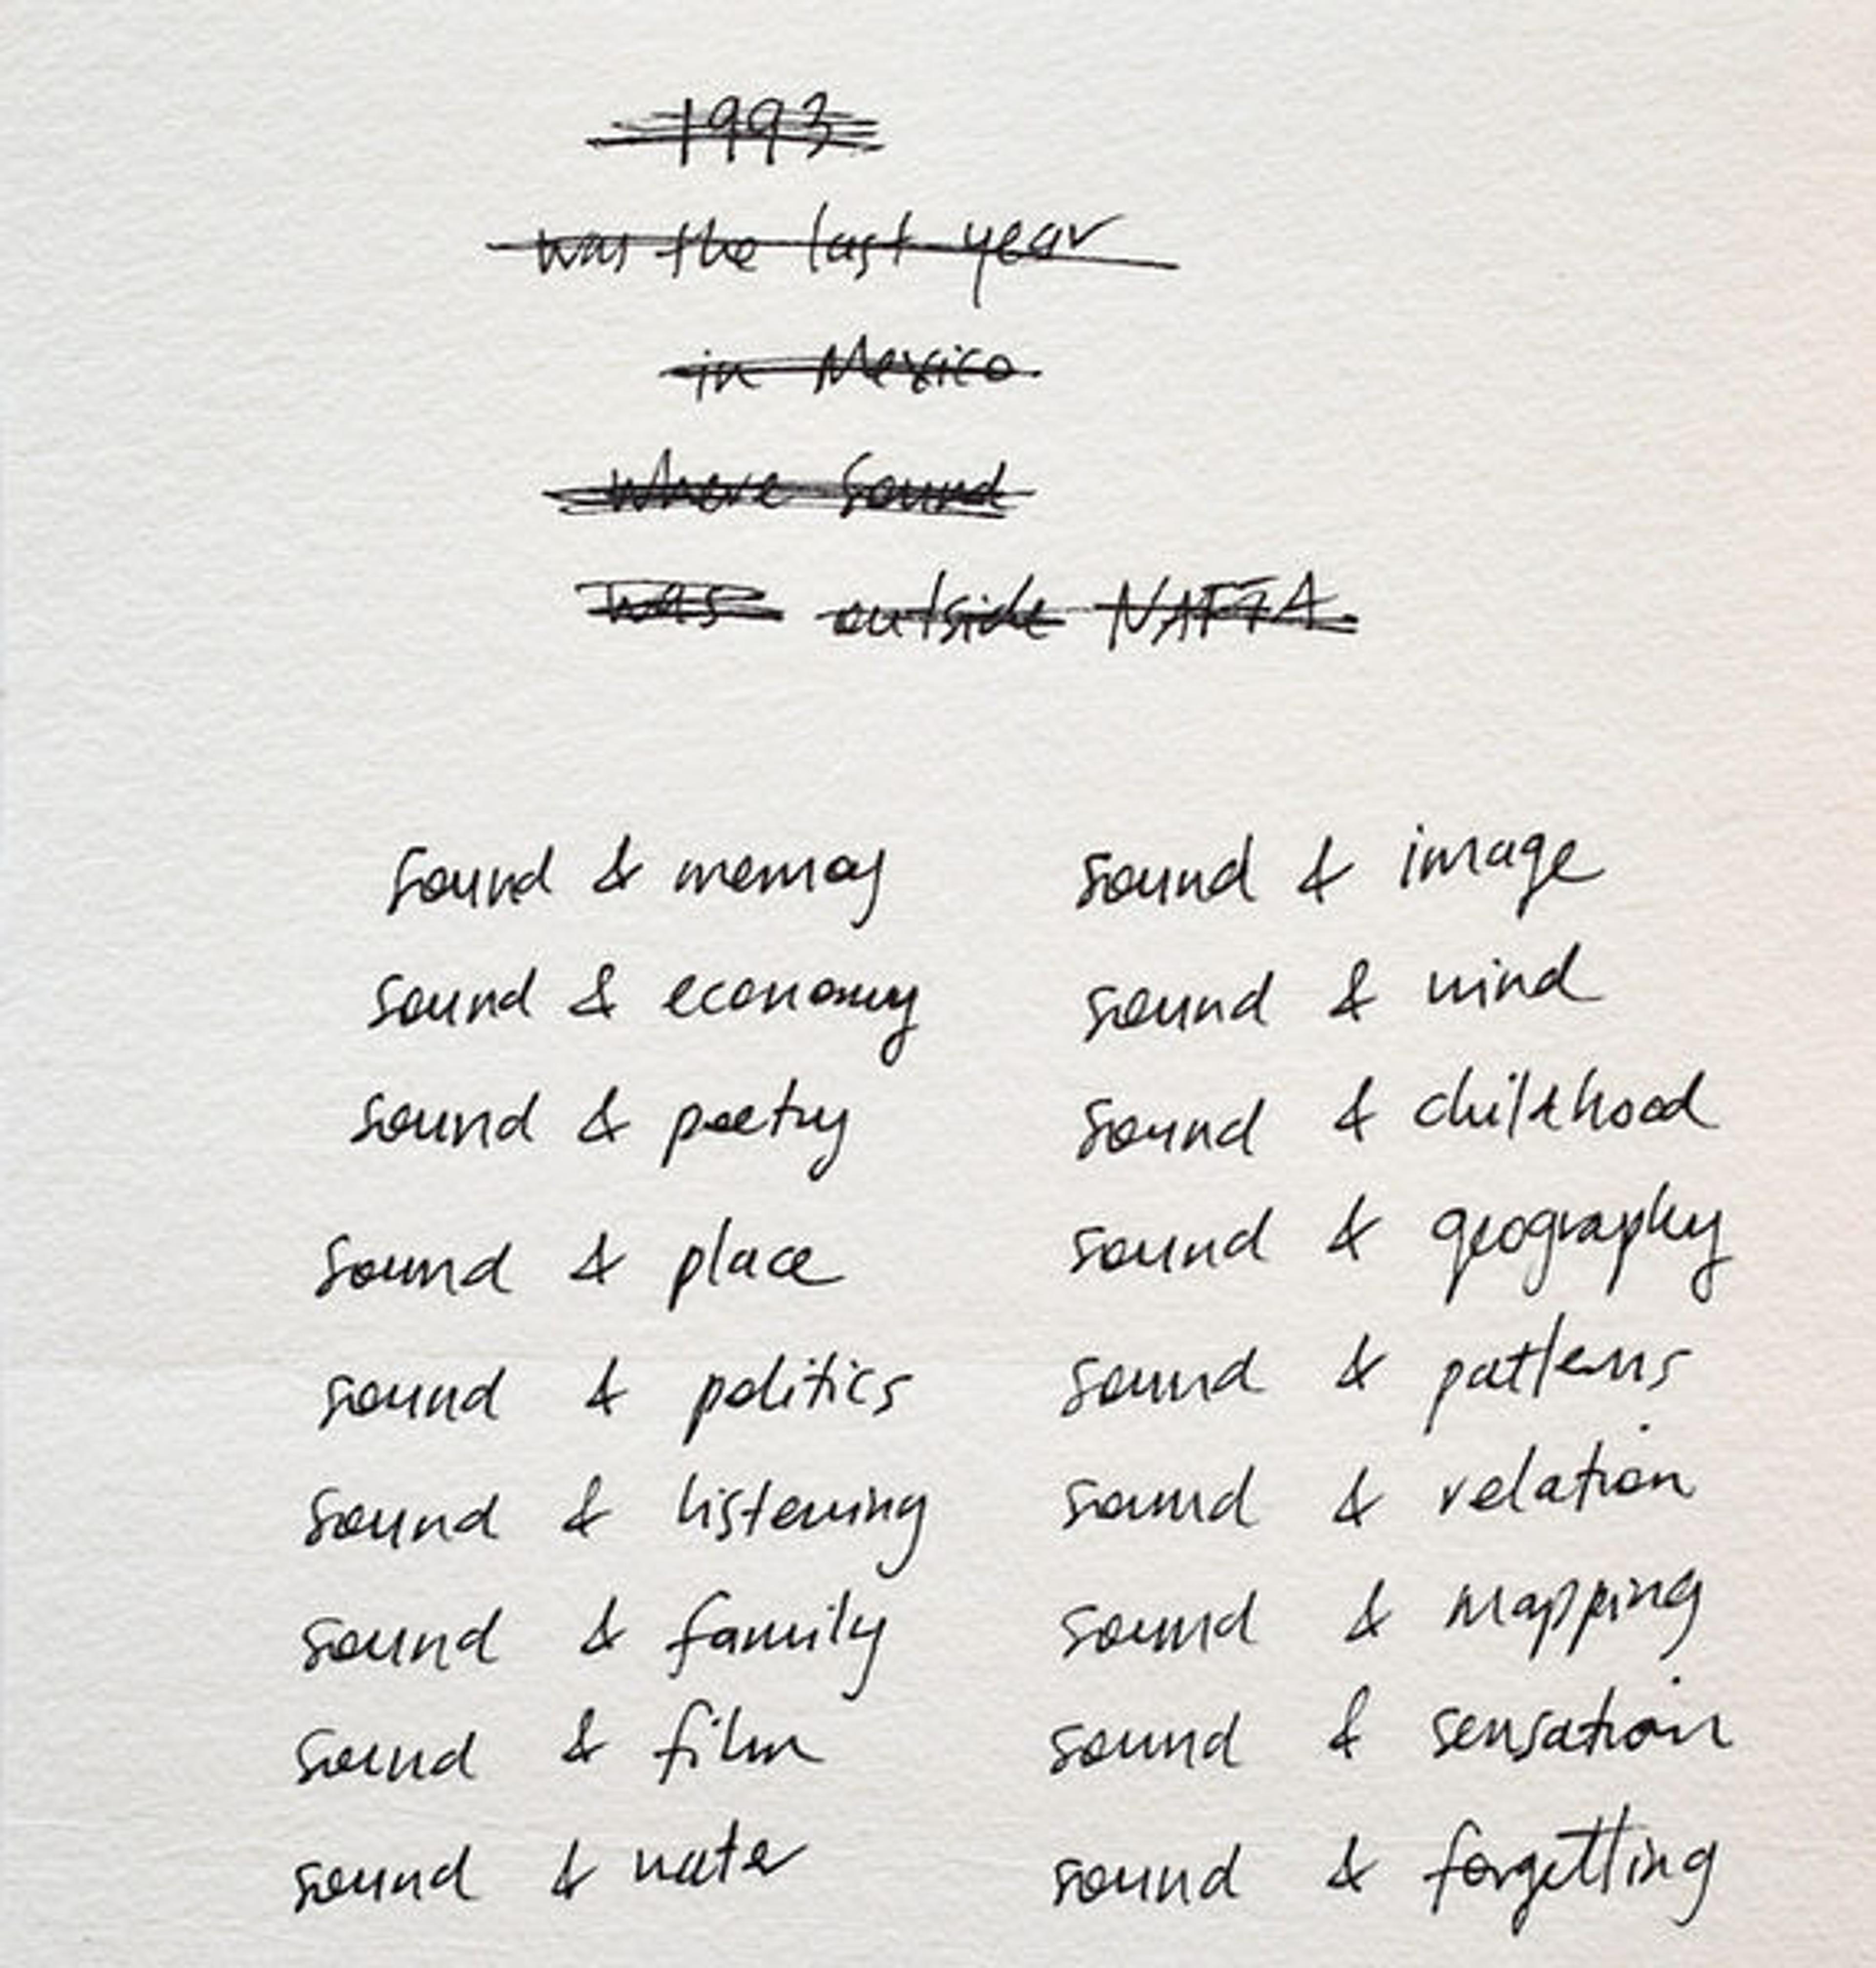 1993
was the last year
in Mexico
where Sound
was outside NAFTA.
sound & memory
sound & economy
sound & poetry
sound & place
sound & politics
sound & listening
sound & family
sound & film
sound & water
sound & image
sound & wind
sound & childhood
sound & geography
sound & patterns
sound & relation
sound & mapping
sound & sensation
sound & forgetting